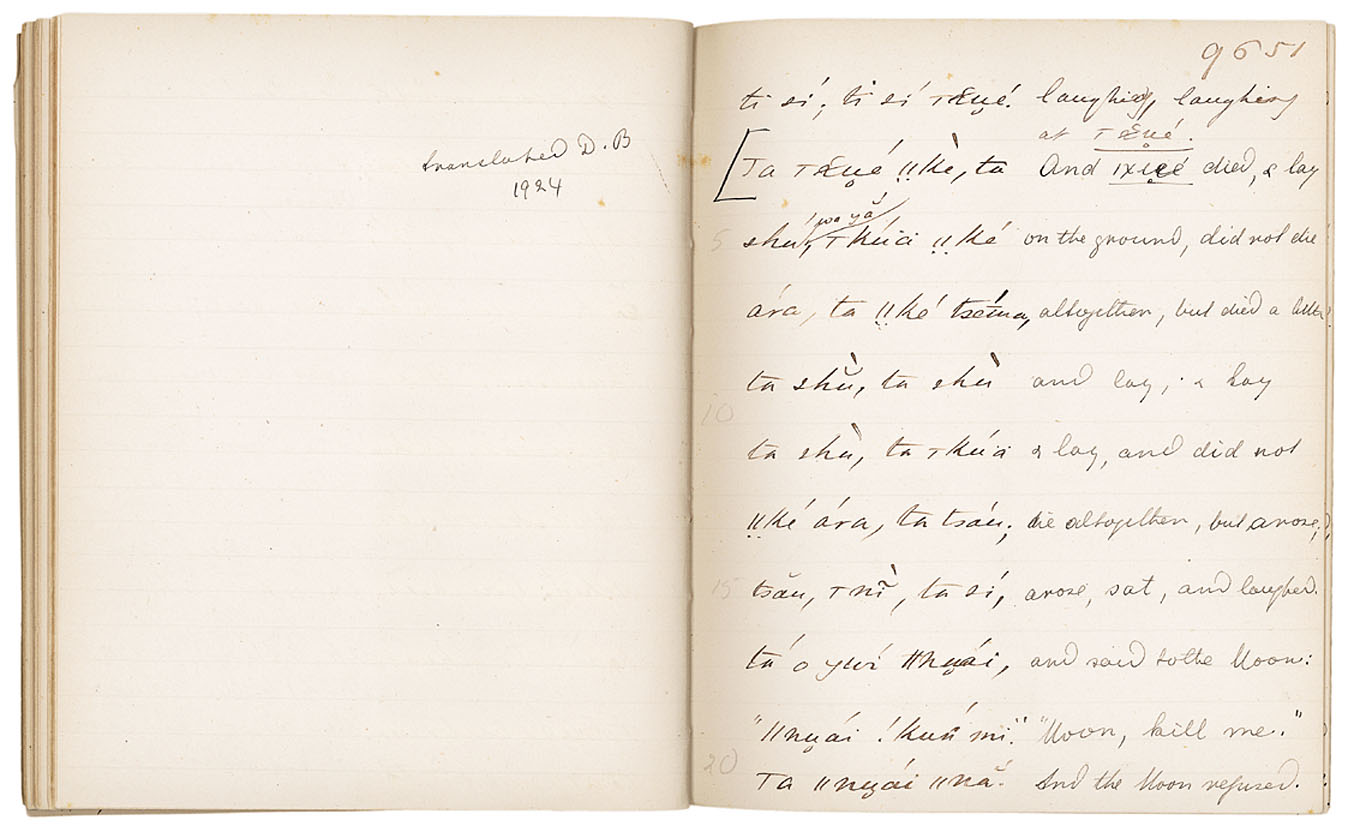 translated D. B
1924
9651
ti sí; ti sí laughing, laughing
at
Ta ‖ké, ta And died, & lay
wa yá
5 shú, ‖ké on the ground, did not die
ára, ta ‖ké altogether, but died a little
ta shù, ta shù and lay, & lay
10
ta shù, ta & lay, and did not
‖ké ára, ta tsáu; die altogether, but arose;
15 tsãu, ta sí, arose, sat, and laughed.
tá o and said to the Moon:
"‖nu̯ái !kuń mí." "Moon, kill me."
20 Ta ‖nu̯ái ‖nǎ. And the Moon refused.